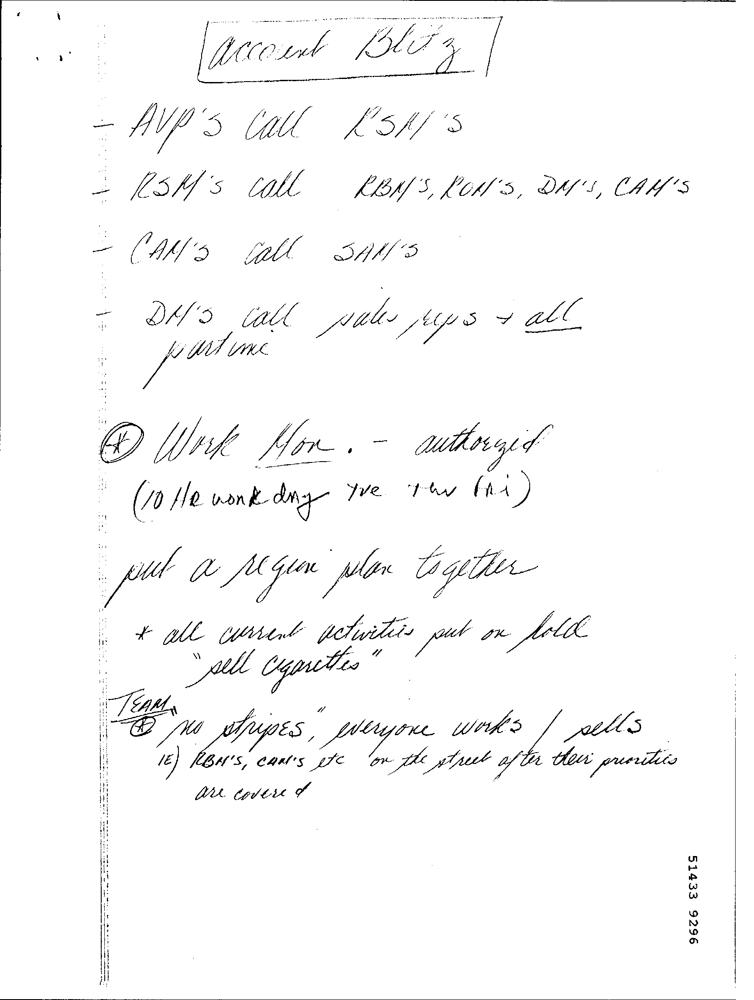 account Blitz
- AVP'S Call RSM'S
- RSM'S call RBM'S, ROM'S, DM'S, CAM'S
- CAM'S call SAM'S
- DM'S call sales reps + all
partime
* Work Mon. - authorized
(10 HR work day Tue Thu Fri)
put a region plan together
* all current activities put on hold
"sell cigarettes"
TEAM
* "no stripes", everyone works / sells
IE) RBM'S, CAM'S etc on the street after their priorities
are covered
51433 9296